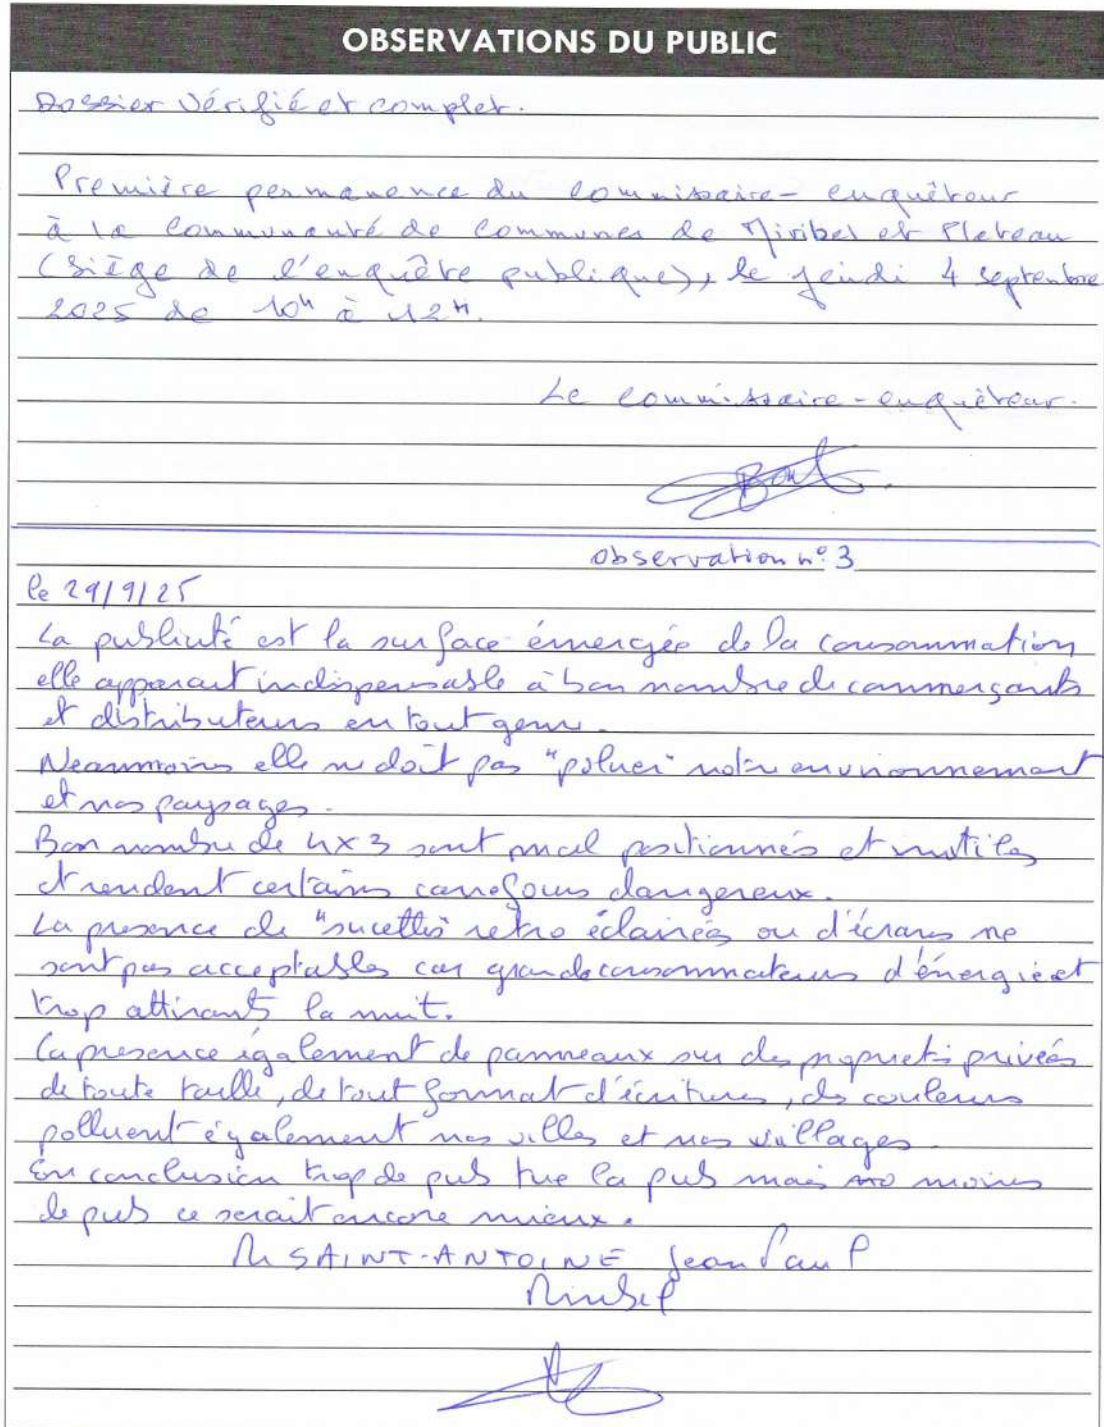 OBSERVATIONS DU PUBLIC
Dossier vérifié et complet.
Première permanence du commissaire-enquêteur
à la Communauté de Communes de Miribel et Plateau
(Siège de l'enquête publique), le jeudi 4 septembre
2025 de 10h à 12H.
Le commissaire-enquêteur.
Observation n°3
le 29/9/25
La publicité est la surface émergée de la consommation
elle apparait indispensable à bon nombre de commerçants
et distributeurs en tout genre.
Neanmoins elle ne doit pas "poluer" notre environnement
et nos paysages.
Bon nombre de 4x3 sont mal positionnés et inutiles
et rendent certains carrefours dangereux.
La presence de "sucettes retro éclairées ou d'écrans ne
sont pas acceptables car grands consommateurs d'énergie et
trop attirants la nuit.
La presence également de panneaux sur des propriétés privées
de toute taille, de tout format d'écritures, des couleurs
polluent également nos villes et nos villages.
En conclusion trop de pub tue la pub mais moins
de pub ce serait encore mieux.
M SAINT-ANTOINE Jean Paul
Miribel